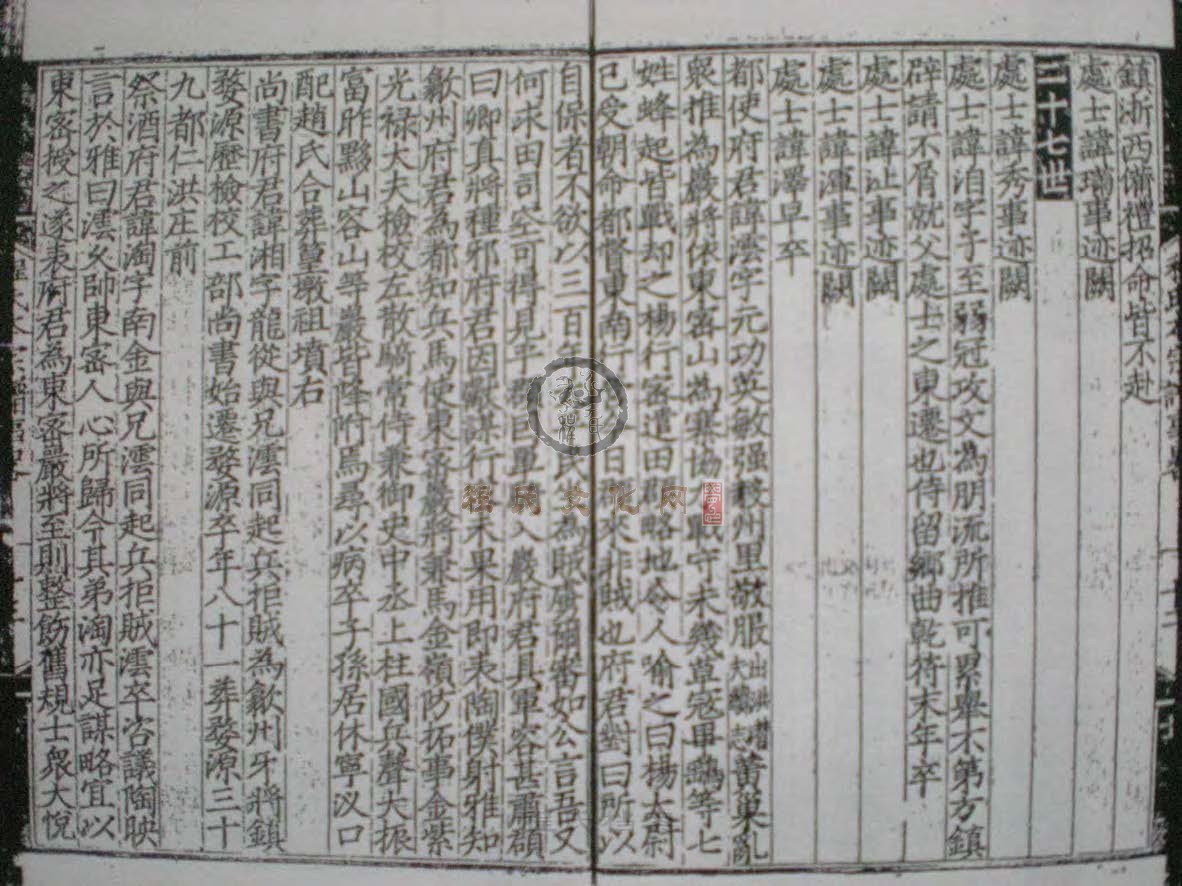 鎮浙西備禮招命皆不赴
處士諱瑞事迹闕
三十七世
處士諱秀事迹闕
處士諱洎字子至弱冠攻文為朋流所推可累舉不第方鎮
辟請不屑就父處士之東遷也侍留鄉曲乾符末年卒
處士諱沚事迹闕
處士諱渾事迹闕
處士諱澤早卒
都使府君諱澐字元功英敏强毅州里敬服黃巢亂
衆推為巖將依東密山為寨協力戰守未幾草寇畢鷂等七
姓蜂起皆戰却之楊行密遣田頵略地令人喻之曰楊太尉
已受朝命都督東南行日來非賊也府君對曰所以
自保者不欲以三百年民坐為賊庶爾審如公言吾又
何求田司空可得見乎單入巖府君具軍容甚肅頵
曰卿真將種邪府君因嚴謀行未果用即表陶僕射雅知
歙州府君為都知兵馬使東密巖將兼馬金嶺防拓事金紫
光禄大夫檢校左散騎常侍兼御史中丞上柱國兵聲大振
富昨黟山容山等巖皆降附焉尋以病卒子孫居休寧汊口
配趙氏合葬篁墩祖墳右
尚書府君諱湘字龍從與兄澐同起兵拒賊為歙州牙將鎮
婺源歷檢校工部尚書始遷婺源卒年八十一葬婺源三十
九都仁洪庄前
祭酒府君諱淘字南金與兄澐同起兵拒賊澐卒咨議陶映
言於雅曰澐久帥東密人心所歸今其弟淘亦足謀略宜以
東密授之遂表府君為東密巖將至則整飭舊規士衆大悅
程典文化网